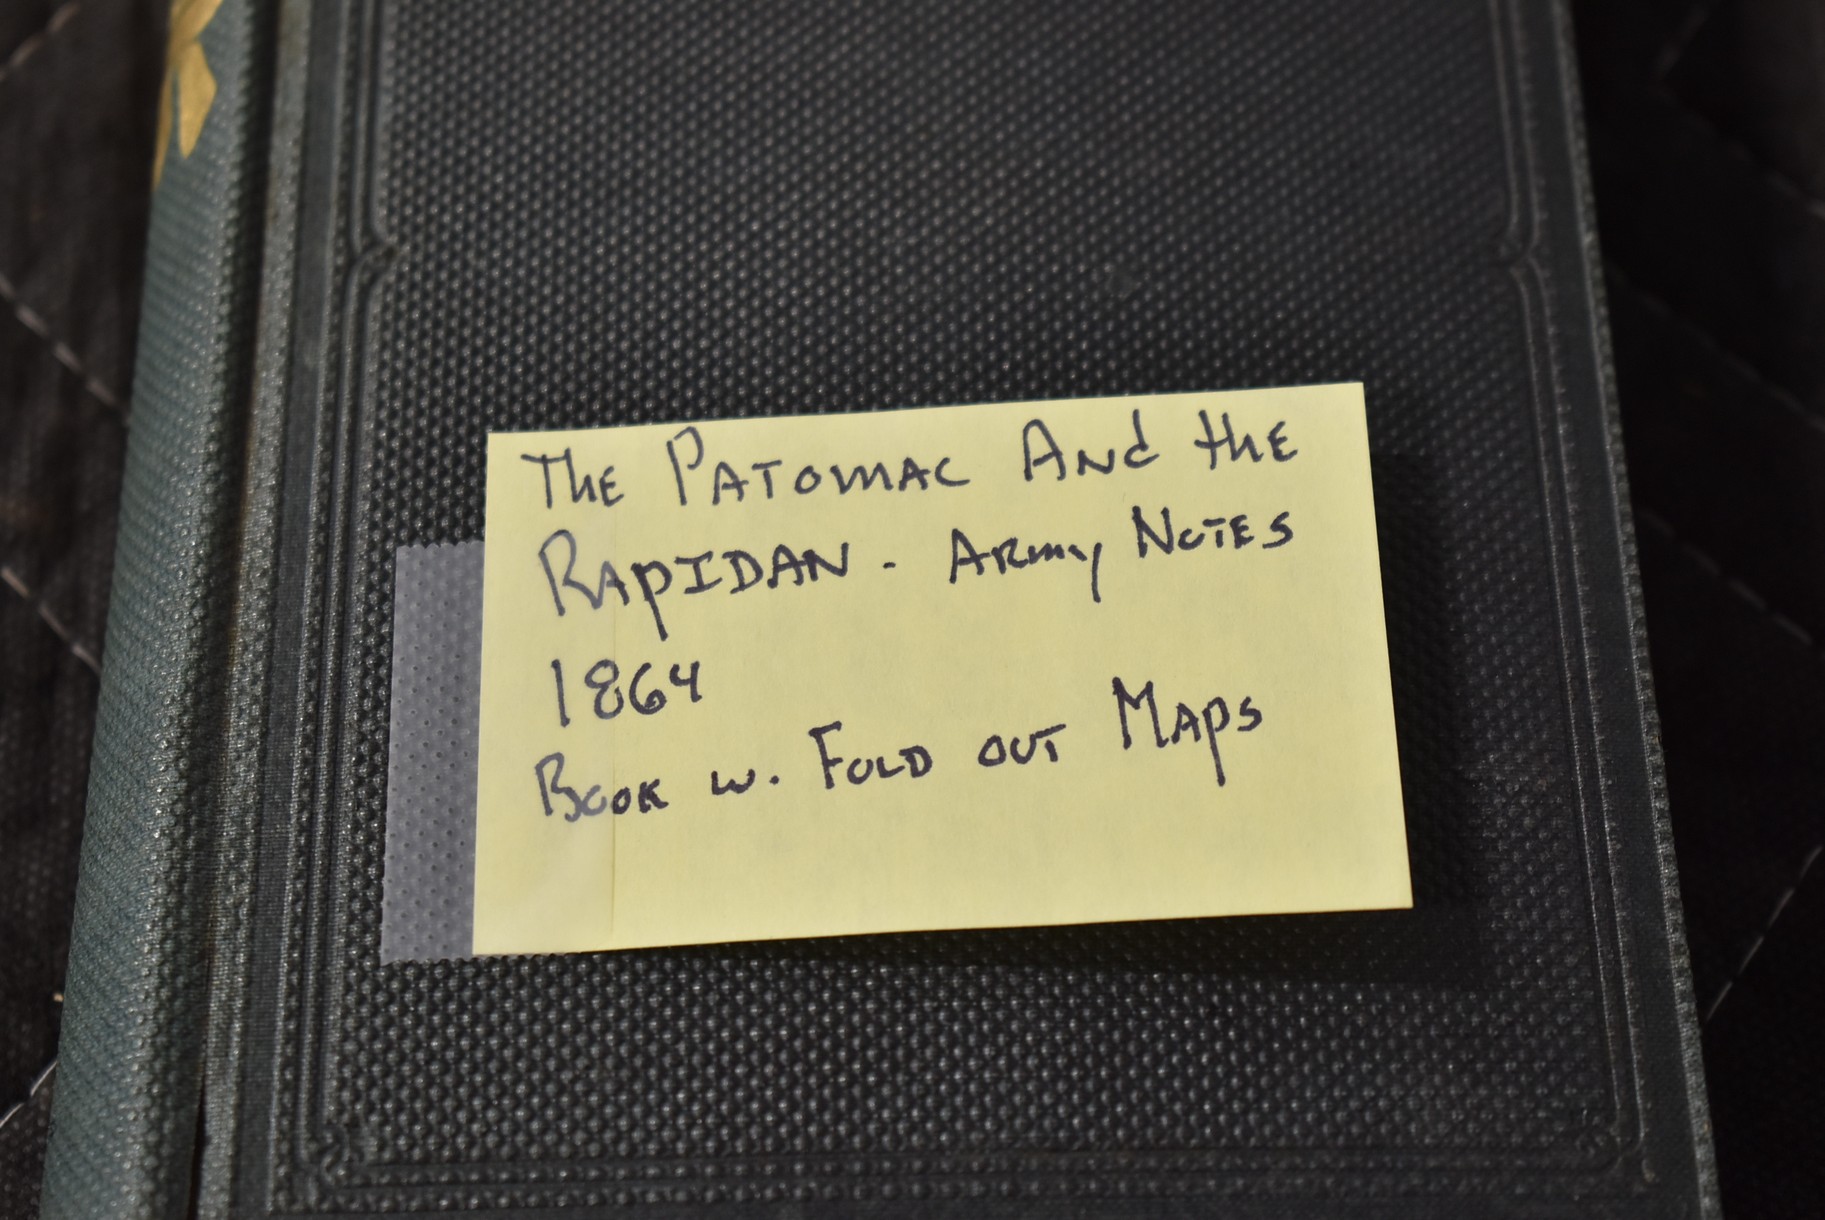 The Patomac And the
Rapidan. Army Notes
1864
Book w. Fold out Maps